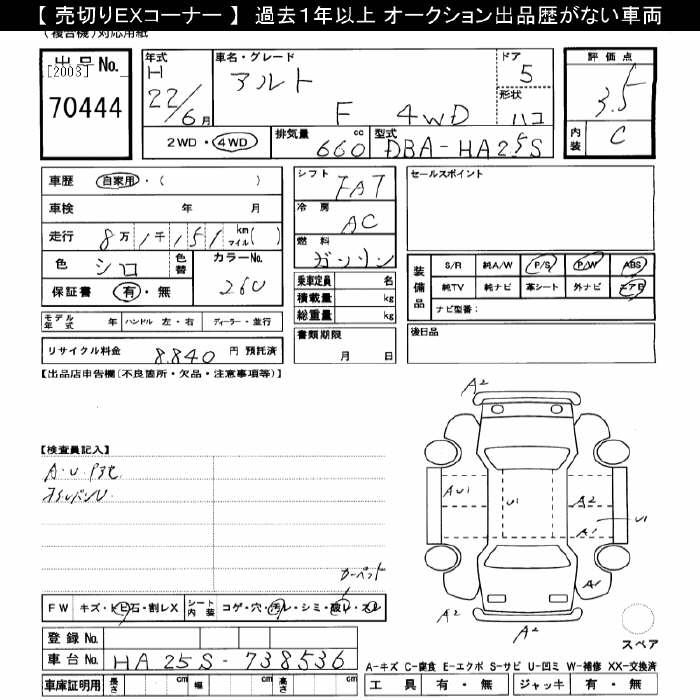 【 売切りEXコーナー 】 過去1年以上 オークション出品歴がない車両
(複合機)対応用紙
出品No.
[2003]
70444
年式
H
22/6月
車名・グレード
アルト
F 4WD
ドア
5
形状
ハコ
評価点
3.5
内装
C
2WD・4WD
排気量
660 cc
型式
DBA-HA25S
車歴 自家用・( )
車検 年 月
走行 8万1千151 km マイル( )
色 シロ
色替
カラーNo.
26U
保証書 有・無
モデル年式 年 ハンドル 左・右 ディーラー・並行
リサイクル料金 8.840 円 預託済
シフト
FAT
冷房
AC
燃料
ガソリン
乗車定員 名
積載量 kg
総重量 kg
書類期限
月 日
セールスポイント
装備品
S/R 純A/W P/S P/W ABS
純TV 純ナビ 革シート 外ナビ エアB
ナビ型番:
後日品
【出品店申告欄(不良箇所・欠品・注意事項等)】
【検査員記入】
A・U
A2
AU1
U1
A2
U1
A1
A1
A2
A2
カーペット
FW キズ・トビ石・割レX
シート内装 コゲ・穴・汚レ・シミ・破レ・スレ
登録No.
車台No. HA25S-738536
車庫証明用 長さ cm 幅 cm 高さ cm
スペア
A-キズ C-腐食 E-エクボ S-サビ U-凹ミ W-補修 XX-交換済
工具 有・無 ジャッキ 有・無